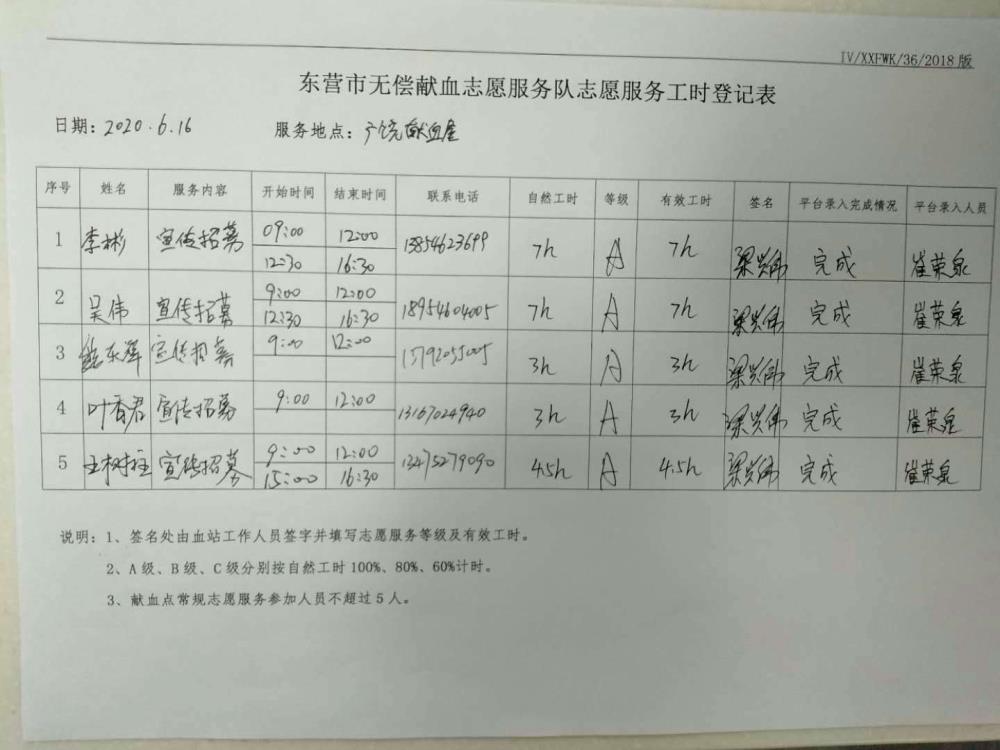 IV/XXFWK/36/2018 版
东营市无偿献血志愿服务队志愿服务工时登记表
日期：2020.6.16 服务地点：广饶献血屋
序号 姓名 服务内容 开始时间 结束时间 联系电话 自然工时 等级 有效工时 签名 平台录入完成情况 平台录入人员
1 李彬 宣传招募 09:00 12:00 13854623699 7h A 7h 梁兴伟 完成 崔荣泉
12:30 16:30
2 吴伟 宣传招募 9:00 12:00 18954604005 7h A 7h 梁兴伟 完成 崔荣泉
12:30 16:30
3 东军 宣传招募 9:00 12:00 3h A 3h 梁兴伟 完成 崔荣泉
4 叶香君 宣传招募 9:00 12:00 13167024940 3h A 3h 梁兴伟 完成 崔荣泉
5 王树柱 宣传招募 9:00 12:00 13475279090 4.5h A 4.5h 梁兴伟 完成 崔荣泉
15:00 16:30
说明：1、签名处由血站工作人员签字并填写志愿服务等级及有效工时。
2、A 级、B 级、C 级分别按自然工时 100%、80%、60%计时。
3、献血点常规志愿服务参加人员不超过 5 人。